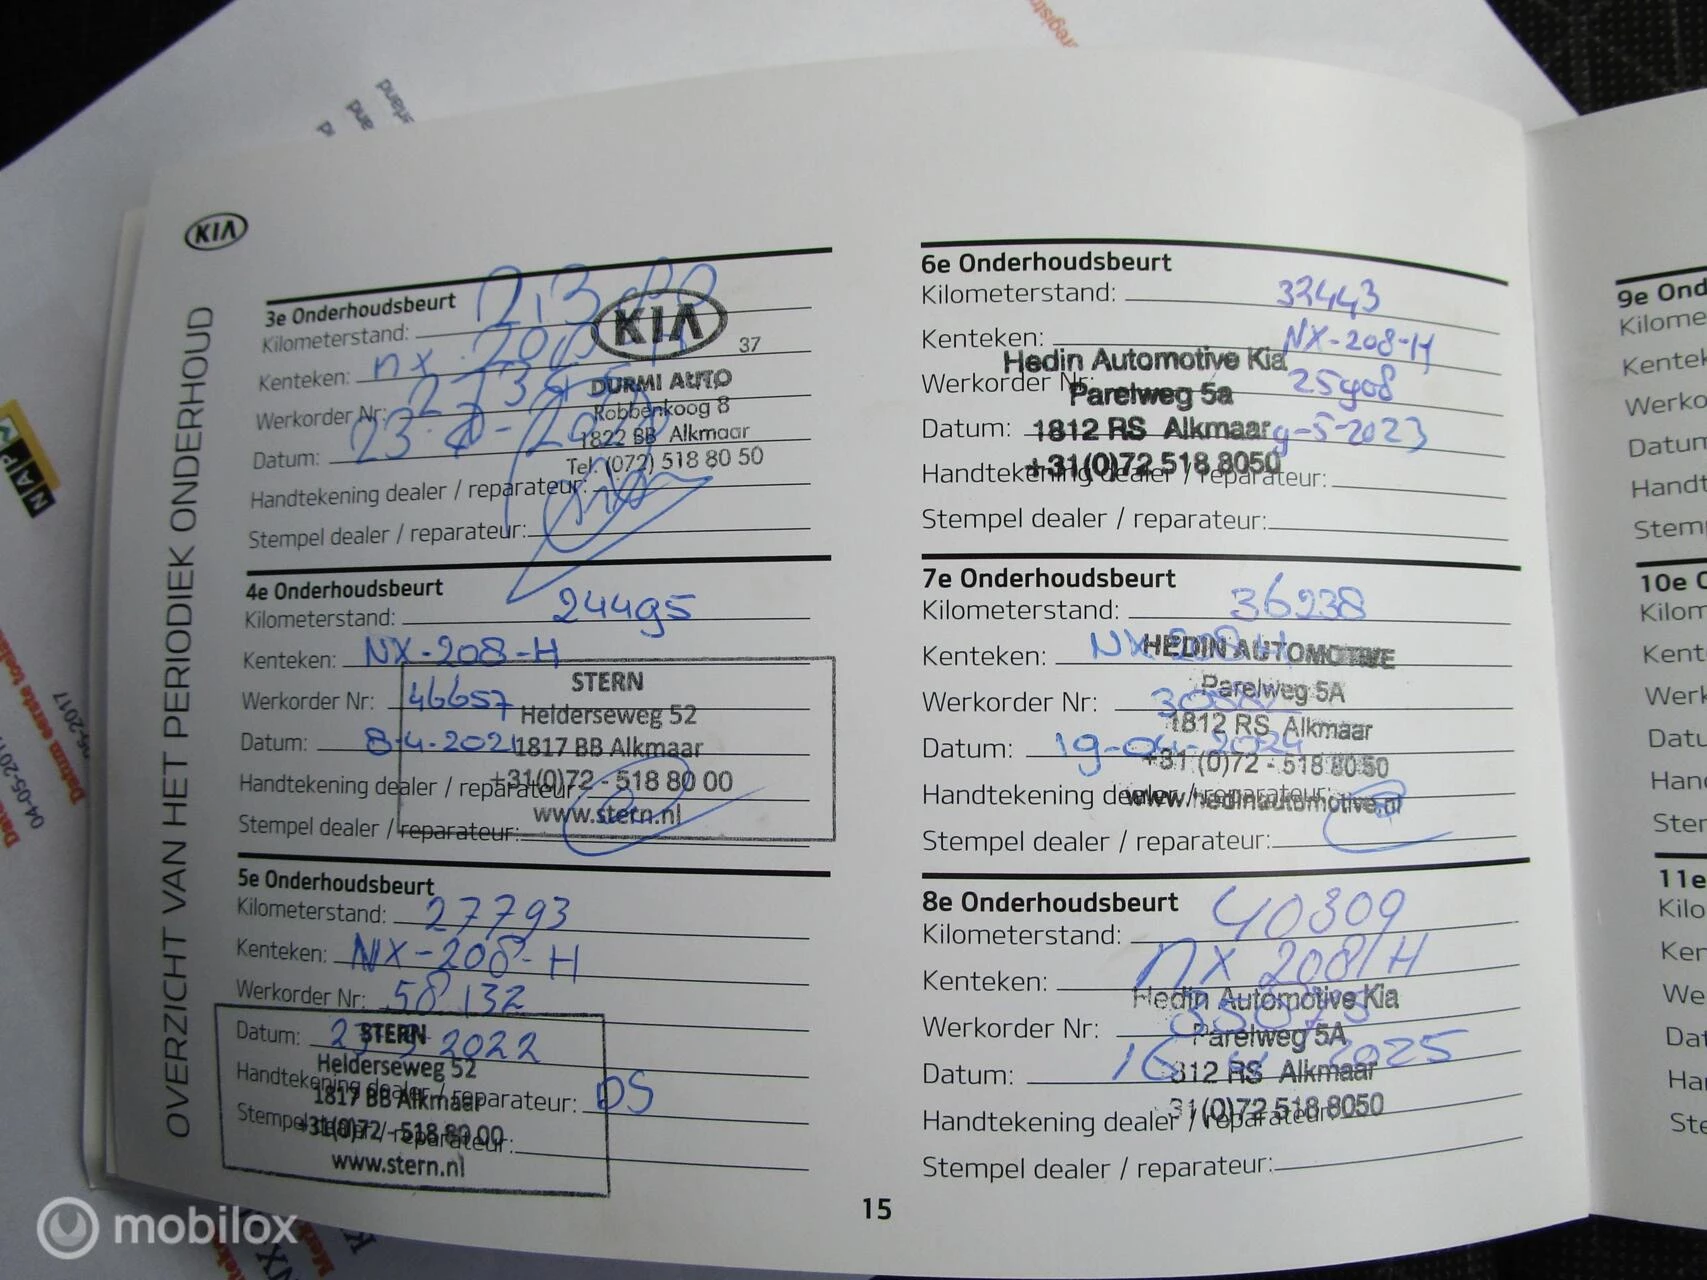 KIA
OVERZICHT VAN HET PERIODIEK ONDERHOUD
3e Onderhoudsbeurt
Kilometerstand:
Kenteken: nx 208
Werkorder Nr:
Datum: 23
Handtekening dealer / reparateur:
Stempel dealer / reparateur:
KIA
37
DURMI AUTO
Robbenkoog 8
1822 BB Alkmaar
Tel. (072) 518 80 50
4e Onderhoudsbeurt
Kilometerstand: 24495
Kenteken: NX-208-H
Werkorder Nr: 46657
Datum: 8-4-2021
Handtekening dealer / reparateur:
Stempel dealer / reparateur:
STERN
Helderseweg 52
1817 BB Alkmaar
+31(0)72 - 518 80 00
www.stern.nl
5e Onderhoudsbeurt
Kilometerstand: 27793
Kenteken: NX-208-H
Werkorder Nr: 58132
Datum: 2022
Handtekening dealer / reparateur: DS
Stempel dealer / reparateur:
STERN
Helderseweg 52
1817 BB Alkmaar
+31(0)72 - 518 80 00
www.stern.nl
6e Onderhoudsbeurt
Kilometerstand: 32443
Kenteken: NX-208-H
Werkorder Nr: 25908
Datum: 9-5-2023
Handtekening dealer / reparateur:
Stempel dealer / reparateur:
Hedin Automotive Kia
Parelweg 5a
1812 RS Alkmaar
+31(0)72 518 8050
7e Onderhoudsbeurt
Kilometerstand: 36238
Kenteken: NX-208-H
Werkorder Nr:
Datum: 19-04-2024
Handtekening dealer / reparateur:
Stempel dealer / reparateur:
HEDIN AUTOMOTIVE
Parelweg 5A
1812 RS Alkmaar
+31 (0)72 - 518 80 50
www.hedinautomotive.nl
8e Onderhoudsbeurt
Kilometerstand: 40309
Kenteken: NX 208 H
Werkorder Nr:
Datum: 16 2025
Handtekening dealer / reparateur:
Stempel dealer / reparateur:
Hedin Automotive Kia
Parelweg 5A
812 RS Alkmaar
31(0)72 518 8050
15
9e Ond
Kilome
Kentek
Werko
Datum
Handt
Stemp
10e O
Kilom
Kent
Werk
Datu
Han
Ster
11e
Kilo
Ken
We
Dat
Ha
Ste
NAP
Datum eerste toelat
04-05-201
05-2017
mobilox